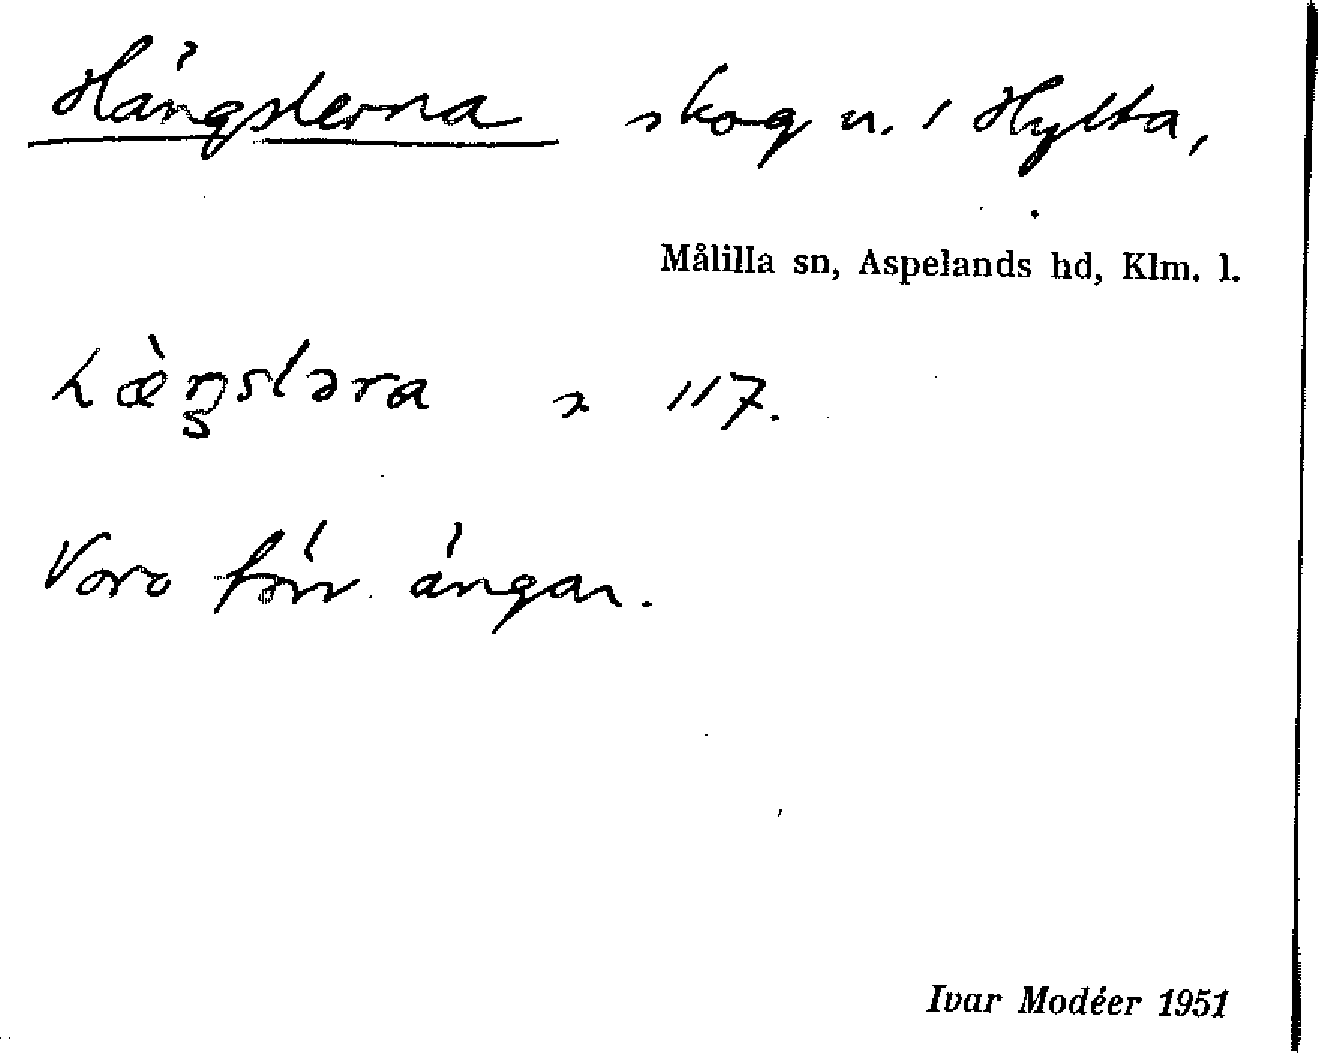 Hängslerna skog n. i Hylta,
Målilla sn, Aspelands hd, Klm. l.
117.
Voro förr ängar.
Ivar Modéer 1951